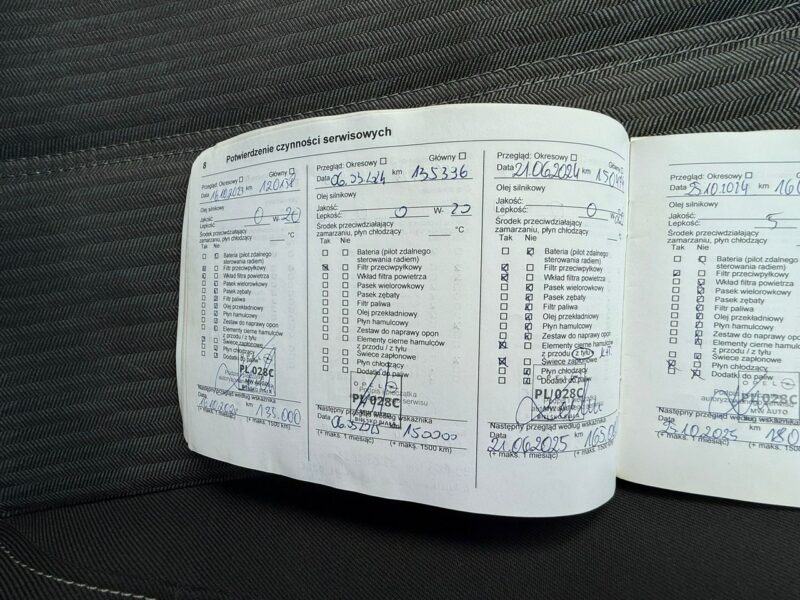 8 Potwierdzenie czynności serwisowych
Przegląd: Okresowy Główny
Data km
Olej silnikowy
Jakość:
Lepkość: 0 W- 20
Środek przeciwdziałający
zamarzaniu, płyn chłodzący °C
Tak Nie
Bateria (pilot zdalnego
sterowania radiem)
Filtr przeciwpyłkowy
Wkład filtra powietrza
Pasek wielorowkowy
Pasek zębaty
Filtr paliwa
Olej przekładniowy
Płyn hamulcowy
Zestaw do naprawy opon
Elementy cierne hamulców
z przodu / z tyłu
Świece zapłonowe
Płyn chłodzący
Dodatki do paliw
PL 028C
Następny przegląd według wskaźnika
Data km
135.000
(+ maks. 1 miesiąc) (+ maks. 1500 km)
Przegląd: Okresowy Główny
Data km 135336
Olej silnikowy
Jakość:
Lepkość: 0 W- 20
Środek przeciwdziałający
zamarzaniu, płyn chłodzący °C
Tak Nie
Bateria (pilot zdalnego
sterowania radiem)
Filtr przeciwpyłkowy
Wkład filtra powietrza
Pasek wielorowkowy
Pasek zębaty
Filtr paliwa
Olej przekładniowy
Płyn hamulcowy
Zestaw do naprawy opon
Elementy cierne hamulców
z przodu / z tyłu
Świece zapłonowe
Płyn chłodzący
Dodatki do paliw
OPEL
PL 028C
BIELSKO BIAŁA
Następny przegląd według wskaźnika
Data km
150000
(+ maks. 1 miesiąc) (+ maks. 1500 km)
Przegląd: Okresowy Główny
Data 21.06.2024 km
Olej silnikowy
Jakość:
Lepkość: 0 W-
Środek przeciwdziałający
zamarzaniu, płyn chłodzący °C
Tak Nie
Bateria (pilot zdalnego
sterowania radiem)
Filtr przeciwpyłkowy
Wkład filtra powietrza
Pasek wielorowkowy
Pasek zębaty
Filtr paliwa
Olej przekładniowy
Płyn hamulcowy
Zestaw do naprawy opon
Elementy cierne hamulców
z przodu / z tyłu
Świece zapłonowe
Płyn chłodzący
Dodatki do paliw
PL 028C
MW AUTO
Następny przegląd według wskaźnika
Data km
21.06.2025
(+ maks. 1 miesiąc) (+ maks. 1500 km)
Przegląd: Okresowy
Data km
Olej silnikowy
Jakość:
Lepkość: 5
Środek przeciwdziałający
zamarzaniu, płyn chłodzący
Tak Nie
Bateria (pilot zdalnego
sterowania radiem)
Filtr przeciwpyłkowy
Wkład filtra powietrza
Pasek wielorowkowy
Pasek zębaty
Filtr paliwa
Olej przekładniowy
Płyn hamulcowy
Zestaw do naprawy opon
Elementy cierne hamulców
z przodu / z tyłu
Świece zapłonowe
Płyn chłodzący
Dodatki do paliw
OPEL
PL 028C
MW AUTO
Następny przegląd według wskaźnika
Data km
25.10.2025
(+ maks. 1 miesiąc) (+ maks. 1500 km)